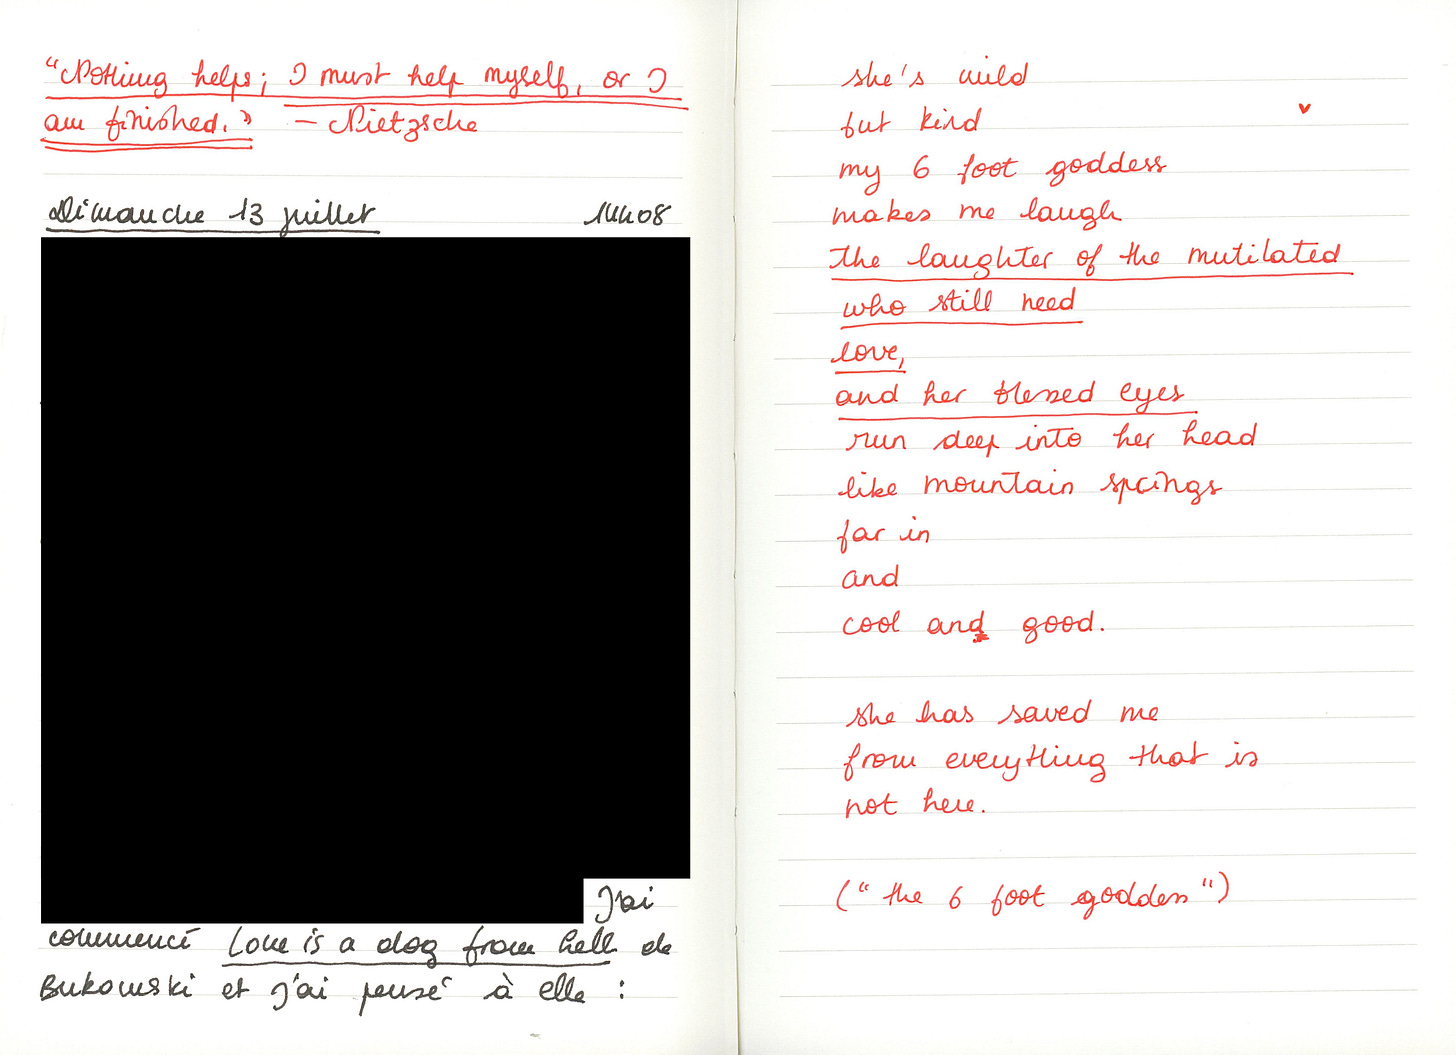 "Nothing helps; I must help myself, or I
am finished." — Nietzsche
Dimanche 13 juillet 14h08
J'ai
commencé Love is a dog from hell de
Bukowski et j'ai pensé à elle :
she's wild
but kind
my 6 foot goddess
makes me laugh
the laughter of the mutilated
who still need
love,
and her blessed eyes
run deep into her head
like mountain springs
far in
and
cool and good.
she has saved me
from everything that is
not here.
("the 6 foot goddess")